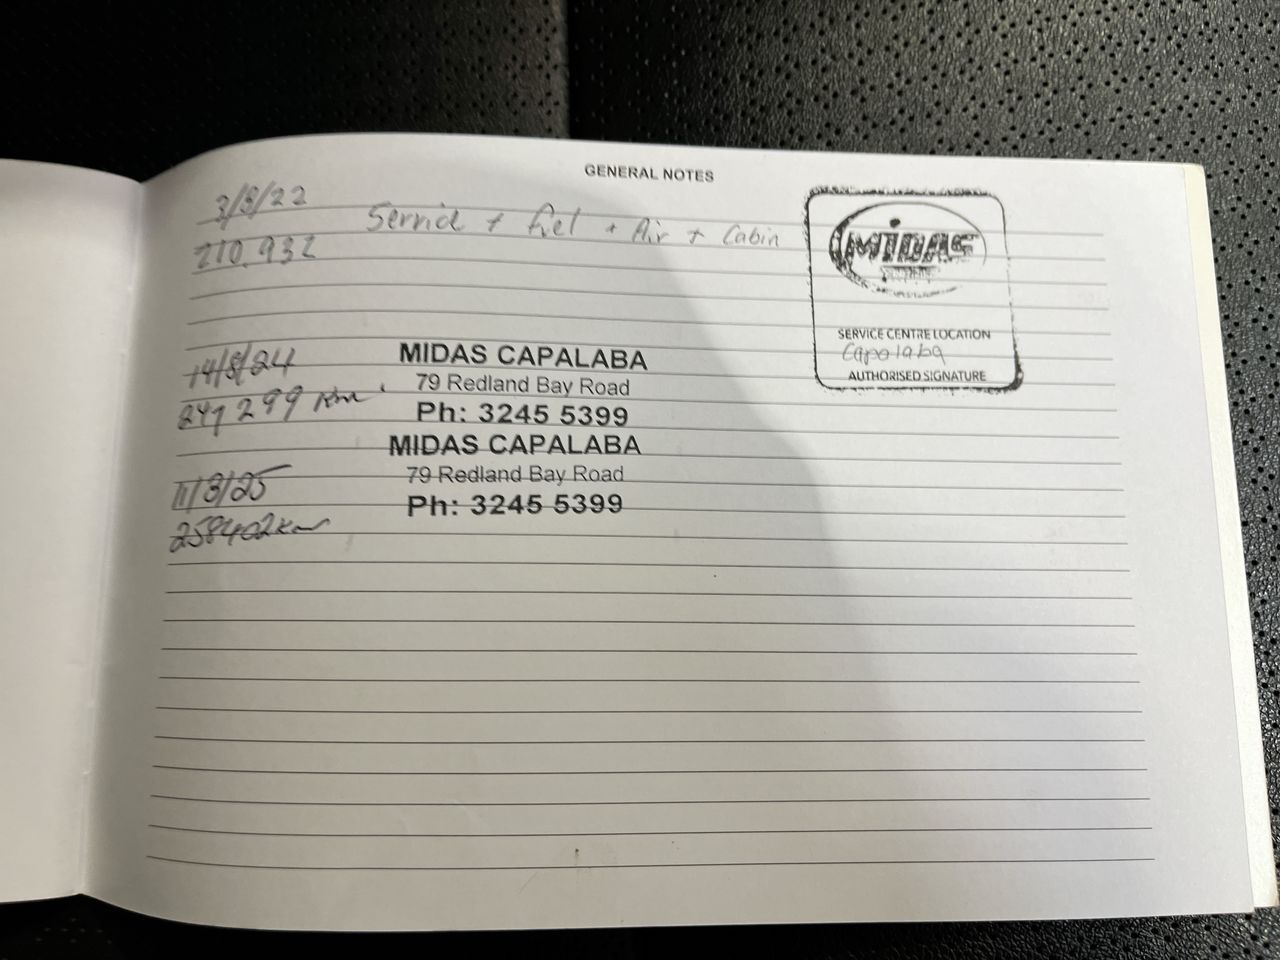 GENERAL NOTES
3/8/22
Service + fuel + Air + Cabin
210,932
MIDAS
SERVICE CENTRE LOCATION
Capalaba
AUTHORISED SIGNATURE
14/8/24
MIDAS CAPALABA
79 Redland Bay Road
247299 Km
Ph: 3245 5399
MIDAS CAPALABA
79 Redland Bay Road
11/8/25
Ph: 3245 5399
258402km